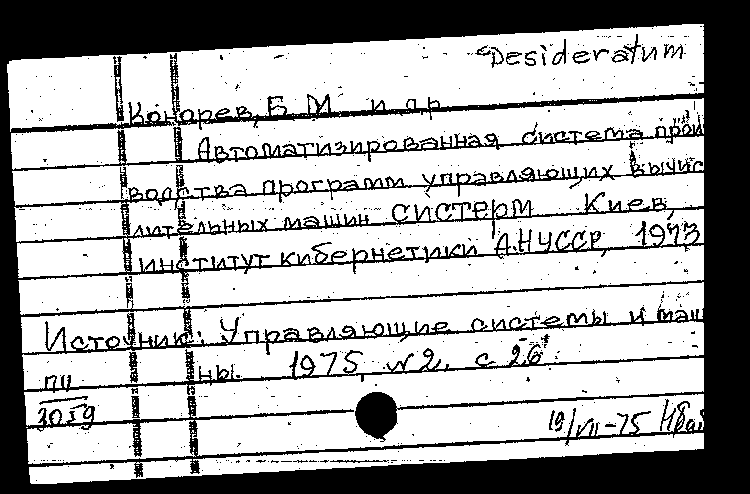 Desideratum
Конорев, Б. М. и др.
Автоматизированная система произ
водства программ управляющих вычис
лительных машин СИСТЕРМ Киев,
институт кибернетики А.Н УССР, 1973
Источник: Управляющие системы и маши
ны. 1975, №2, с 26
ПИ
3059
19/VII-75